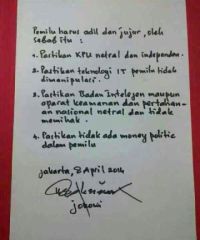 Pemilu harus adil dan jujur, oleh
sebab itu :
1. Pastikan KPU netral dan independen.
2. Pastikan teknologi IT pemilu tidak
dimanipulasi.
3. Pastikan Badan Intelejen maupun
aparat keamanan dan pertahan-
an nasional netral dan tidak
memihak.
4. Pastikan tidak ada money politic
dalam pemilu
Jakarta, 8 April 2014
jokowi